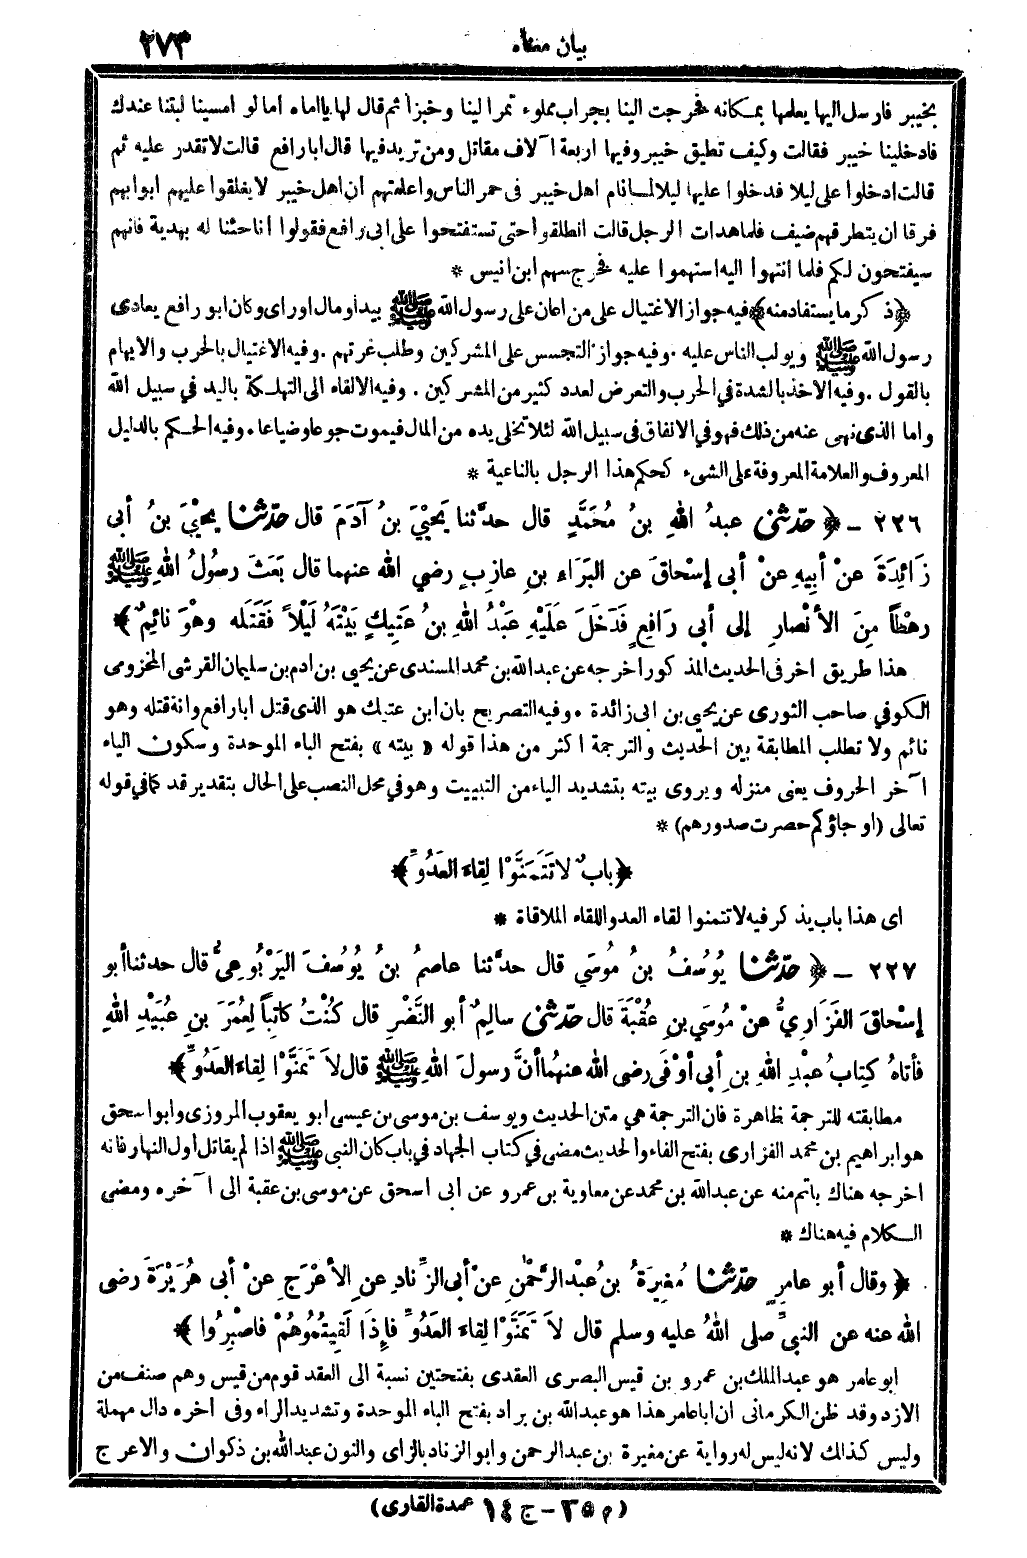 بيان معناه ٢٧٣
بخيبر فارسل اليها يعلمها بمكانه فخرجت الينا بجراب مملوء تمرا لينا وخبزا ثم قال لها يا اماه اما لو امسينا لبتنا عندك
فادخلينا خيبر فقالت وكيف تطيق خيبر وفيها اربعة آلاف مقاتل ومن تريد فيها قال ابا رافع قالت لا تقدر عليه ثم
قالت ادخلوا على ليلا فدخلوا عليها ليلا لما نام اهل خيبر فى حمر الناس واعلمتهم ان اهل خيبر لا يغلقوا عليهم ابوابهم
فرقا ان يتطرقهم ضيف فلما هدات الرجل قالت انطلقوا حتى تستفتحوا على ابى رافع فقولوا انا جئنا له بهدية فانهم
سيفتحون لكم فلما انتهوا اليه استهموا عليه فخرج سهم ابن انيس *
﴿ذكر ما يستفاد منه﴾ فيه جواز الاغتيال على من اعان على رسول الله ﷺ بيد او مال او راى وكان ابو رافع يعادى
رسول الله ﷺ ويولب الناس عليه . وفيه جواز التجسس على المشركين وطلب غرتهم . وفيه الاغتيال بالحرب والايهام
بالقول . وفيه الاخذ بالشدة في الحرب والتعرض لعدد كثير من المشركين . وفيه الالقاء الى التهلكة باليد في سبيل الله
واما الذى نهى عنه من ذلك فهو في الانفاق فى سبيل الله لئلا تخلى يده من المال فيموت جوعا وضياعا . وفيه الحكم بالدليل
المعروف والعلامة المعروفة على الشىء كحكم هذا الرجل بالناعية *
٢٢٦ - ﴿ حدّثنى عبدُ اللهِ بنُ مُحَمَّدٍ قال حدَّثنا يَحْيَى بنُ آدَمَ قال حدّثنا يَحْيَى بنُ أبى
زَائِدَةَ عنْ أبِيهِ عنْ أبى إسْحاقَ عن البَرَاءِ بنِ عازِبٍ رضي الله عنهما قال بَعَثَ رسُولُ اللهِ ﷺ
رهْطًا مِنَ الأنْصارِ إلى أبى رَافِعٍ فَدَخَلَ عَلَيْهِ عبْدُ اللهِ بنُ عَتِيكٍ بَيْتَهُ لَيْلاً فَقَتَلَه وهْوَ نائِمٌ ﴾
هذا طريق اخر فى الحديث المذكور اخرجه عن عبد الله بن محمد المسندى عن يحيى بن ادم بن سليمان القرشى المخزومى
الكوفي صاحب الثورى عن يحيى بن ابى زائدة . وفيه التصريح بان ابن عتيك هو الذى قتل ابا رافع وانه قتله وهو
نائم ولا تطلب المطابقة بين الحديث والترجمة اكثر من هذا قوله « بيته » بفتح الباء الموحدة وسكون الياء
آخر الحروف يعنى منزله ويروى بيته بتشديد الياء من التبييت وهو في محل النصب على الحال بتقدير قد كما في قوله
تعالى (او جاؤكم حصرت صدورهم) *
﴿ بابٌ لا تَتَمَنَّوْا لِقاءَ العَدُوِّ ﴾
اى هذا باب يذكر فيه لا تتمنوا لقاء العدو اللقاء الملاقاة *
٢٢٧ - ﴿ حدّثنا يُوسُفُ بنُ مُوسَي قال حدَّثنا عاصمُ بنُ يُوسُفَ اليَرْبُوعِيُّ قال حدثنا أبو
إسْحاقَ الفَزَارِيُّ عنْ مُوسَي بنِ عُقْبَةَ قال حدّثنى سالِمٌ أبو النَّضْرِ قال كُنْتُ كاتِبًا لِعُمَرَ بنِ عُبَيْدِ اللهِ
فأتاهُ كِتابُ عبْدِ اللهِ بنِ أبى أوْفَى رضى الله عنهُما أنَّ رسولَ اللهِ ﷺ قال لاَ تَمَنَّوْا لِقاءَ العَدُوِّ ﴾
مطابقته للترجمة ظاهرة فان الترجمة هي متن الحديث ويوسف بن موسى بن عيسى ابو يعقوب المروزى وابو اسحق
هو ابراهيم بن محمد الفزارى بفتح الفاء والحديث مضى في كتاب الجهاد في باب كان النبى ﷺ اذا لم يقاتل أول النهار فانه
اخرجه هناك باتم منه عن عبد الله بن محمد عن معاوية بن عمرو عن ابى اسحق عن موسى بن عقبة الى آخره ومضى
الكلام فيه هناك *
﴿ وقال أبو عامِرٍ حدّثنا مُغِيرَةُ بنُ عبْدِ الرَّحْمنِ عنْ أبى الزِّنادِ عنِ الأعْرَجِ عنْ أبى هُرَيْرَةَ رضى
الله عنه عن النبيِّ صلى اللهُ عليه وسلم قال لاَ تَمَنَّوْا لِقاءَ العَدُوِّ فإِذَا لَقِيتُمُوهُمْ فاصْبِرُوا ﴾
ابو عامر هو عبد الملك بن عمرو بن قيس البصرى العقدى بفتحتين نسبة الى العقد قوم من قيس وهم صنف من
الازد وقد ظن الكرمانى ان ابا عامر هذا هو عبد الله بن براد بفتح الباء الموحدة وتشديد الراء وفى اخره دال مهملة
وليس كذلك لانه ليس له رواية عن مغيرة بن عبد الرحمن وابو الزناد بالزاى والنون عبد الله بن ذكوان والاعرج
(م ٣٥ - ج ١٤ عمدة القارى)